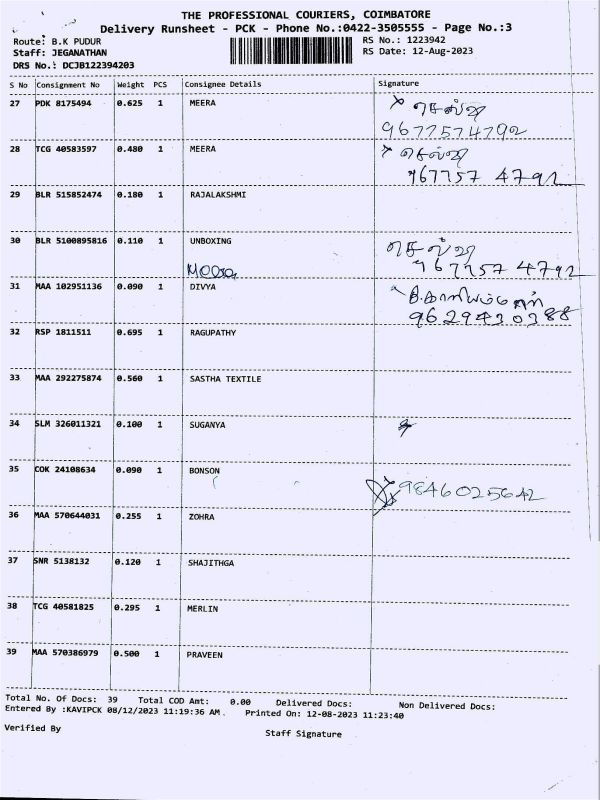 THE PROFESSIONAL COURIERS, COIMBATORE
Delivery Runsheet - PCK - Phone No.:0422-3505555 - Page No.:3
Route: B.K PUDUR RS No.: 1223942
Staff: JEGANATHAN RS Date: 12-Aug-2023
DRS No.: DCJB122394203
S No Consignment No Weight PCS Consignee Details Signature
27 PDK 8175494 0.625 1 MEERA செல்வி
9677574792
28 TCG 40583597 0.480 1 MEERA செல்வி
967757 4792
29 BLR 515852474 0.180 1 RAJALAKSHMI
30 BLR 5100895816 0.110 1 UNBOXING செல்வி
967757 4792
31 MAA 102951136 0.090 1 DIVYA
9629430388
32 RSP 1811511 0.695 1 RAGUPATHY
33 MAA 292275874 0.560 1 SASTHA TEXTILE
34 SLM 326011321 0.100 1 SUGANYA
35 COK 24108634 0.090 1 BONSON
9846025642
36 MAA 570644031 0.255 1 ZOHRA
37 SNR 5138132 0.120 1 SHAJITHGA
38 TCG 40581825 0.295 1 MERLIN
39 MAA 570386979 0.500 1 PRAVEEN
Total No. Of Docs: 39 Total COD Amt: 0.00 Delivered Docs: Non Delivered Docs:
Entered By :KAVIPCK 08/12/2023 11:19:36 AM. Printed On: 12-08-2023 11:23:40
Verified By Staff Signature